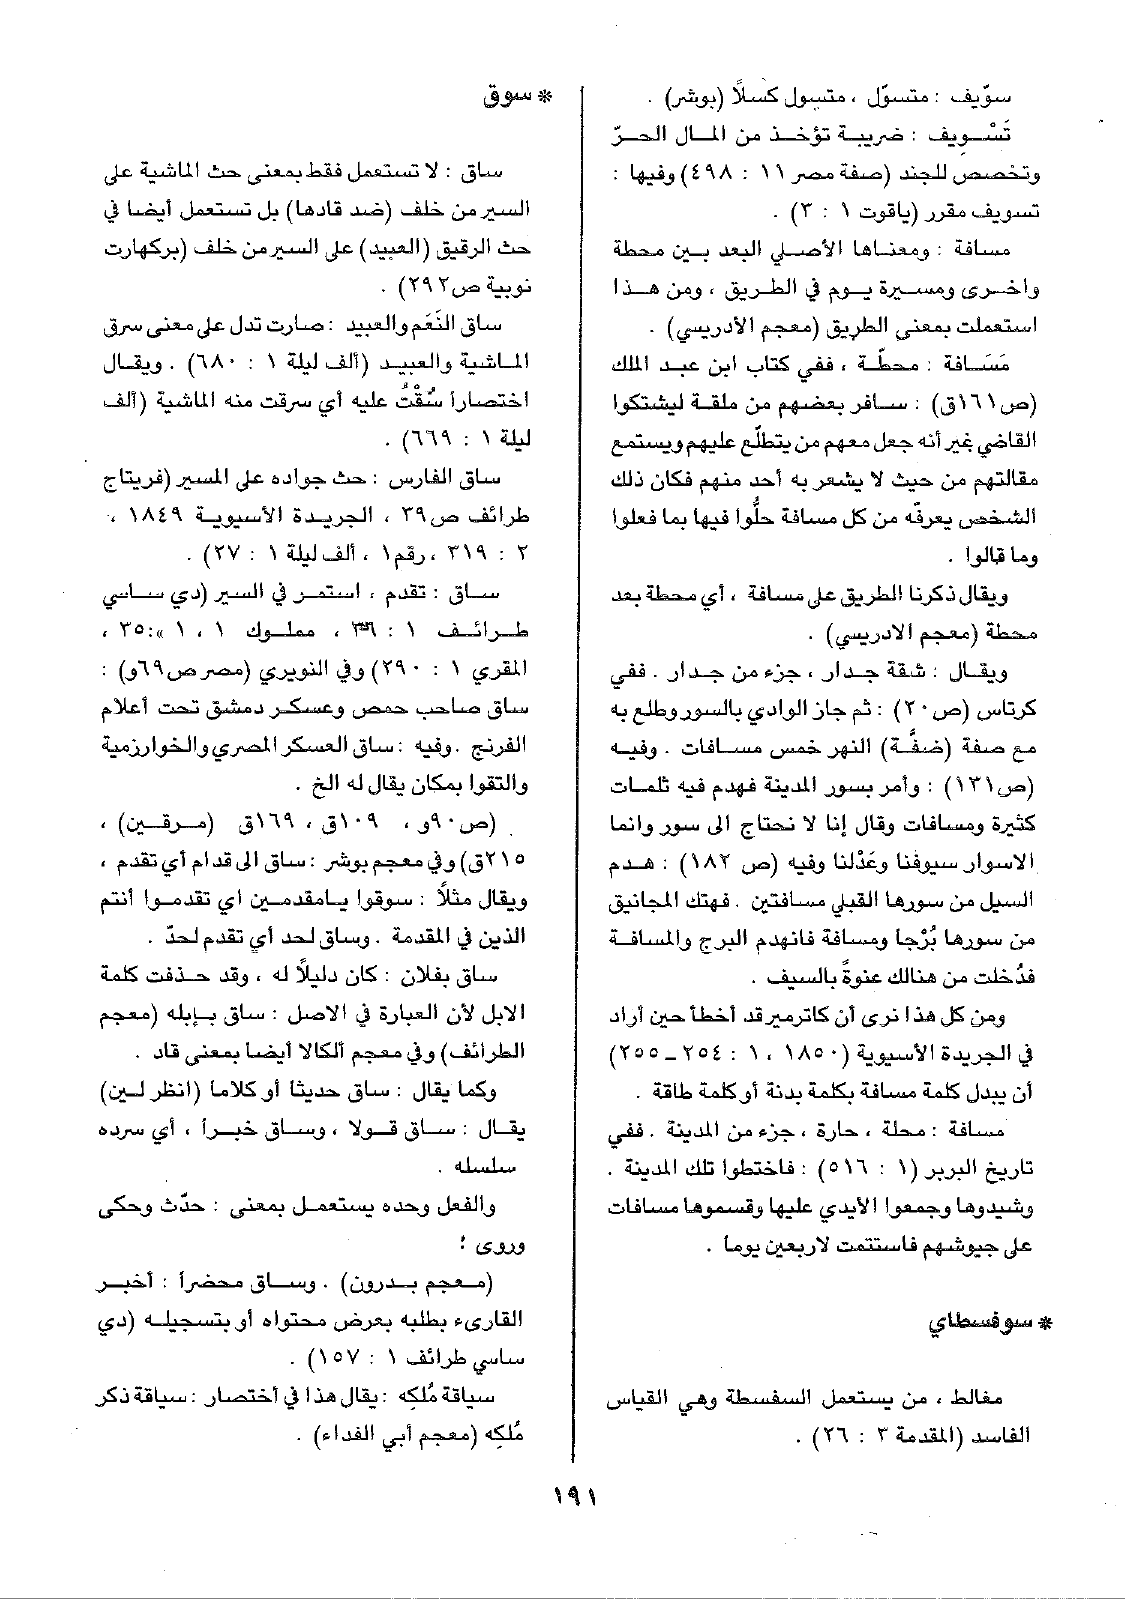 سوّيف : متسوّل ، متسول كسلاً (بوشر) .
تَسْويف : ضريبة تؤخذ من المال الحرّ
وتخصص للجند (صفة مصر ١١ : ٤٩٨) وفيها :
تسويف مقرر (ياقوت ١ : ٣) .
مسافة : ومعناها الأصلي البعد بين محطة
واخرى ومسيرة يوم في الطريق ، ومن هذا
استعملت بمعنى الطريق (معجم الأدريسي) .
مَسَافة : محطّة ، ففي كتاب ابن عبد الملك
(ص١٦١ق) : سافر بعضهم من ملقة ليشتكوا
القاضي غير أنه جعل معهم من يتطلّع عليهم ويستمع
مقالتهم من حيث لا يشعر به أحد منهم فكان ذلك
الشخص يعرفّه من كل مسافة حلُّوا فيها بما فعلوا
وما قالوا .
ويقال ذكرنا الطريق على مسافة ، أي محطة بعد
محطة (معجم الادريسي) .
ويقال : شقة جدار ، جزء من جدار . ففي
كرتاس (ص٢٠) : ثم جاز الوادي بالسور وطلع به
مع صفة (ضفَّة) النهر خمس مسافات . وفيه
(ص١٣١) : وأمر بسور المدينة فهدم فيه ثلمات
كثيرة ومسافات وقال إنا لا نحتاج الى سور وانما
الاسوار سيوفنا وعَدْلنا وفيه (ص ١٨٢) : هدم
السيل من سورها القبلي مسافتين . فهتك المجانيق
من سورها بُرْجا ومسافة فانهدم البرج والمسافة
فدُخلت من هنالك عنوةً بالسيف .
ومن كل هذا نرى أن كاترميرقد أخطأ حين أراد
في الجريدة الأسيوية (١٨٥٠ ، ١ : ٢٥٤ ـ ٢٥٥)
أن يبدل كلمة مسافة بكلمة بدنة أو كلمة طاقة .
مسافة : محلة ، حارة ، جزء من المدينة . ففي
تاريخ البربر (١ : ٥١٦) : فاختطوا تلك المدينة .
وشيدوها وجمعوا الأيدي عليها وقسموها مسافات
على جيوشهم فاستتمت لاربعين يوما .
* سوفسطاي
مغالط ، من يستعمل السفسطة وهي القياس
الفاسد (المقدمة ٣ : ٢٦) .
* سوق
ساق : لا تستعمل فقط بمعنى حث الماشية على
السير من خلف (ضد قادها) بل تستعمل أيضا في
حث الرقيق (العبيد) على السير من خلف (بركهارت
نوبية ص٢٩٢) .
ساق النَعَم والعبيد : صارت تدل على معنى سرق
الماشية والعبيد (ألف ليلة ١ : ٦٨٠) . ويقال
اختصاراً سُقْتُ عليه أي سرقت منه الماشية (ألف
ليلة ١ : ٦٦٩) .
ساق الفارس : حث جواده على المسير (فريتاج
طرائف ص٣٩ ، الجريدة الأسيوية ١٨٤٩ ،
٢ : ٣١٩ ، رقم١ ، ألف ليلة ١ : ٢٧) .
ساق : تقدم ، استمر في السير (دي ساسي
طرائف ١ : ، مملوك ١ ، ١ : ٣٥ ،
المقري ١ : ٢٩٠) وفي النويري (مصر ص٦٩و) :
ساق صاحب حمص وعسكر دمشق تحت أعلام
الفرنج . وفيه : ساق العسكر المصري والخوارزمية
والتقوا بمكان يقال له الخ .
(ص٩٠و ، ١٠٩ق ، ١٦٩ق (مرقين) ،
٢١٥ق) وفي معجم بوشر : ساق الى قدام أي تقدم ،
ويقال مثلاً : سوقوا يامقدمين اي تقدموا أنتم
الذين في المقدمة . وساق لحد أي تقدم لحدّ .
ساق بفلان : كان دليلاً له ، وقد حذفت كلمة
الابل لأن العبارة في الاصل : ساق بإبله (معجم
الطرائف) وفي معجم ألكالا أيضا بمعنى قاد .
وكما يقال : ساق حديثا أو كلاما (انظر لين)
يقال : ساق قولا ، وساق خبراً ، أي سرده
سلسله .
والفعل وحده يستعمل بمعنى : حدّث وحكى
وروى :
(معجم بدرون) . وساق محضراً : أخبر
القارىء بطلبه بعرض محتواه أو بتسجيله (دي
ساسي طرائف ١ : ١٥٧) .
سياقة مُلكِه : يقال هذا في أختصار : سياقة ذكر
مُلكِه (معجم أبي الفداء) .
١٩١